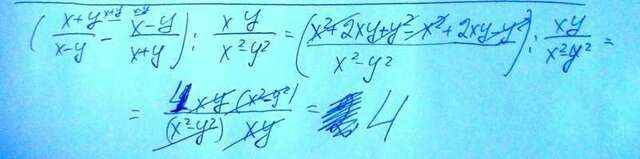 ( (x+y)^{x+y}/(x-y) - (x-y)^{x-y}/(x+y) ) : xy/(x²y²) = ( (x²+2xy+y²-x²+2xy-y²)/(x²-y²) ) : xy/(x²-y²) =
= (4xy(x²-y²))/((x²-y²)xy) = 4